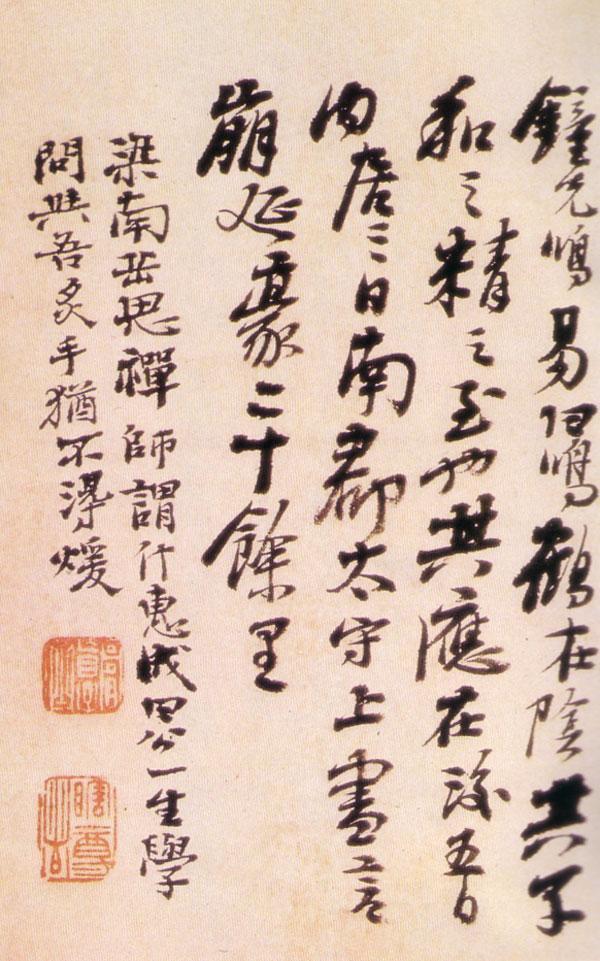 鐘先鳴易曰鳴鶴在陰其子
和之精之至也其應在後五日
內居三日南郡太守上書言
崩延袤二十餘里
梁南岳思禪師謂什惠成曰公一生學
問與吾炙手猶不得煖
瞎尊者